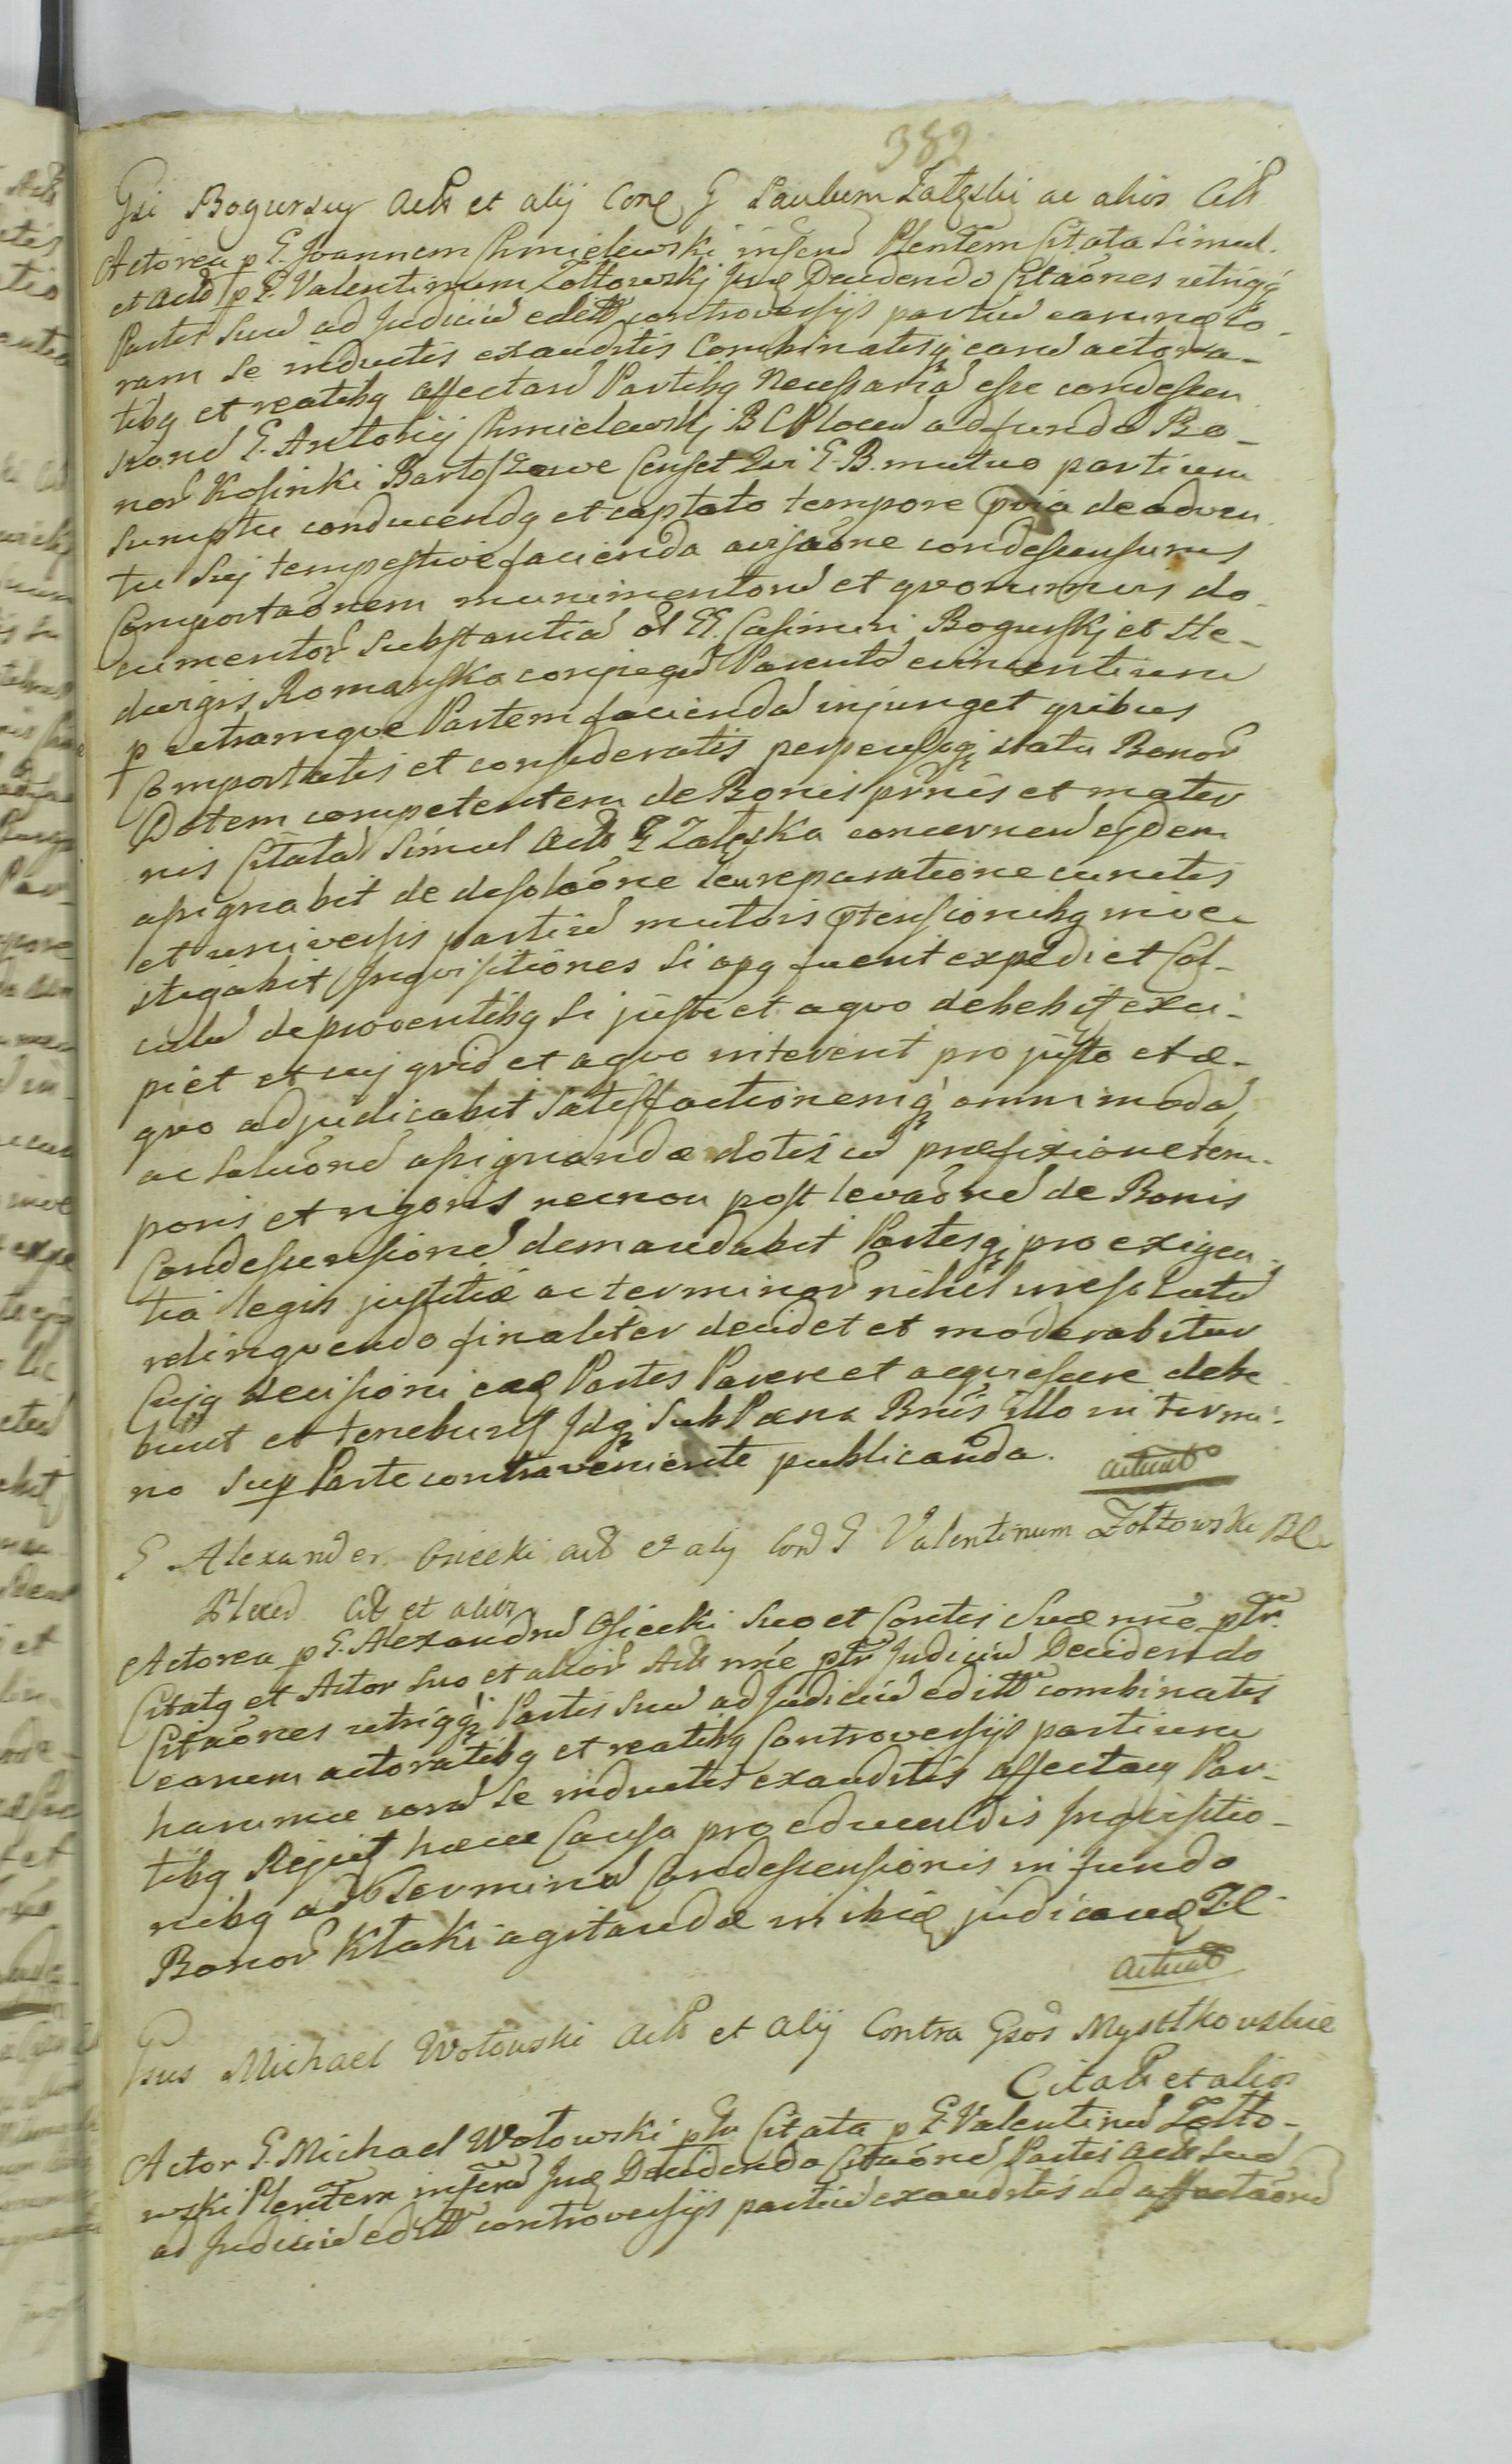 382
Gsi Bogurscy Act et alij Con G Paulum Zaleski ac alios Cit
Actorea p G. Joannem Chmielewski infend Plentem Citata Simul
et Act p G. Valentinum Zołtowskj Decidendo Citaones utrigq
Partis suu ad Judiciu editt controversijs partiu earum co-
ram se inductis exauditis Combinatisq earu actora-
tibq et reatibq affectan Partibq Necessaria esse condescen
sione G. Antonij Chmielewskj B C P locu ad funda Bo-
nor Kosinki Bartoszowe Censet Qui G. B. mutuo partium
sumptu conducendq et captato tempore pvia de adven
tu sui tempestive facienda avisaone condescensurus
Comportaonem munimentoru et quorumvis do-
cumentor substantia ol GG. Casimiri Bogurskj et He-
duigis Romanska conjugu Parentu evincentium
p utramque Partem facienda injunget quibus
Comportatis et consideratis perpensisq statu Bonor
Dotem competentem de Bonis prnis et mater
nis Citata simul Act G Zaleska concernen ejdem
assignabit de desolaone seu reparatione cunctis
et universis partiu mutuis ptensionibq inve
stigabit Inquisitiones si opq fuerit expediet Cal-
culu de proventibq si juste et aquo debebit exci-
piet et cuj quid et aquo intererit pro justo et æ-
quo adjudicabit Satisfactionemq omnimoda,
ac soluone assignandæ dotis cu præfixione tem-
poris et rigoris necnon post levaone de Bonis
Condescensione demandabit Partesq pro exigen
tia legis justitiæ ac terminor nihil irresolutu
relinquendo finaliter decidet et moderabitur
Cujq decisioni eæd Partes Parere et acquiescere debe
bunt et tenebunt Idq sub Pæna Bnis illo in termi-
no sup Parte contraveniente publicanda.
Actuat
G Alexander Osiecki act et alij Con G Valentinum Zołtowski BC
Cit et alios
Actorea p G. Alexandru Osiecki suo et Contis Suæ nne ptr
Citatq et Actor suo et alior Act nne ptr Judiciu Decidendo
Citaones utrigqq Partis suu ad Judiciu editt combinatis
earum actoratibq et reatibq Controversijs partium
harumce cora se inductis exauditis affectan Par-
tibq Rejicit hance Causa pro educendis Inquisitio-
nibq ad Terminu Condescensionis in fundo
Bonor Kłaki agitandæ inibiq judicand
Actuat
Gsus Michael Wołowski Act et alij Contra Gsos Mysttkowskie
Citat et alios
Actor G. Michael Wołowski ptr Citata p G. Valentinu Zołto-
wski Plentem infend Decidendo Citaone Partis Act suu
ad Judiciu editt controversijs partiu exauditis ad affectaone